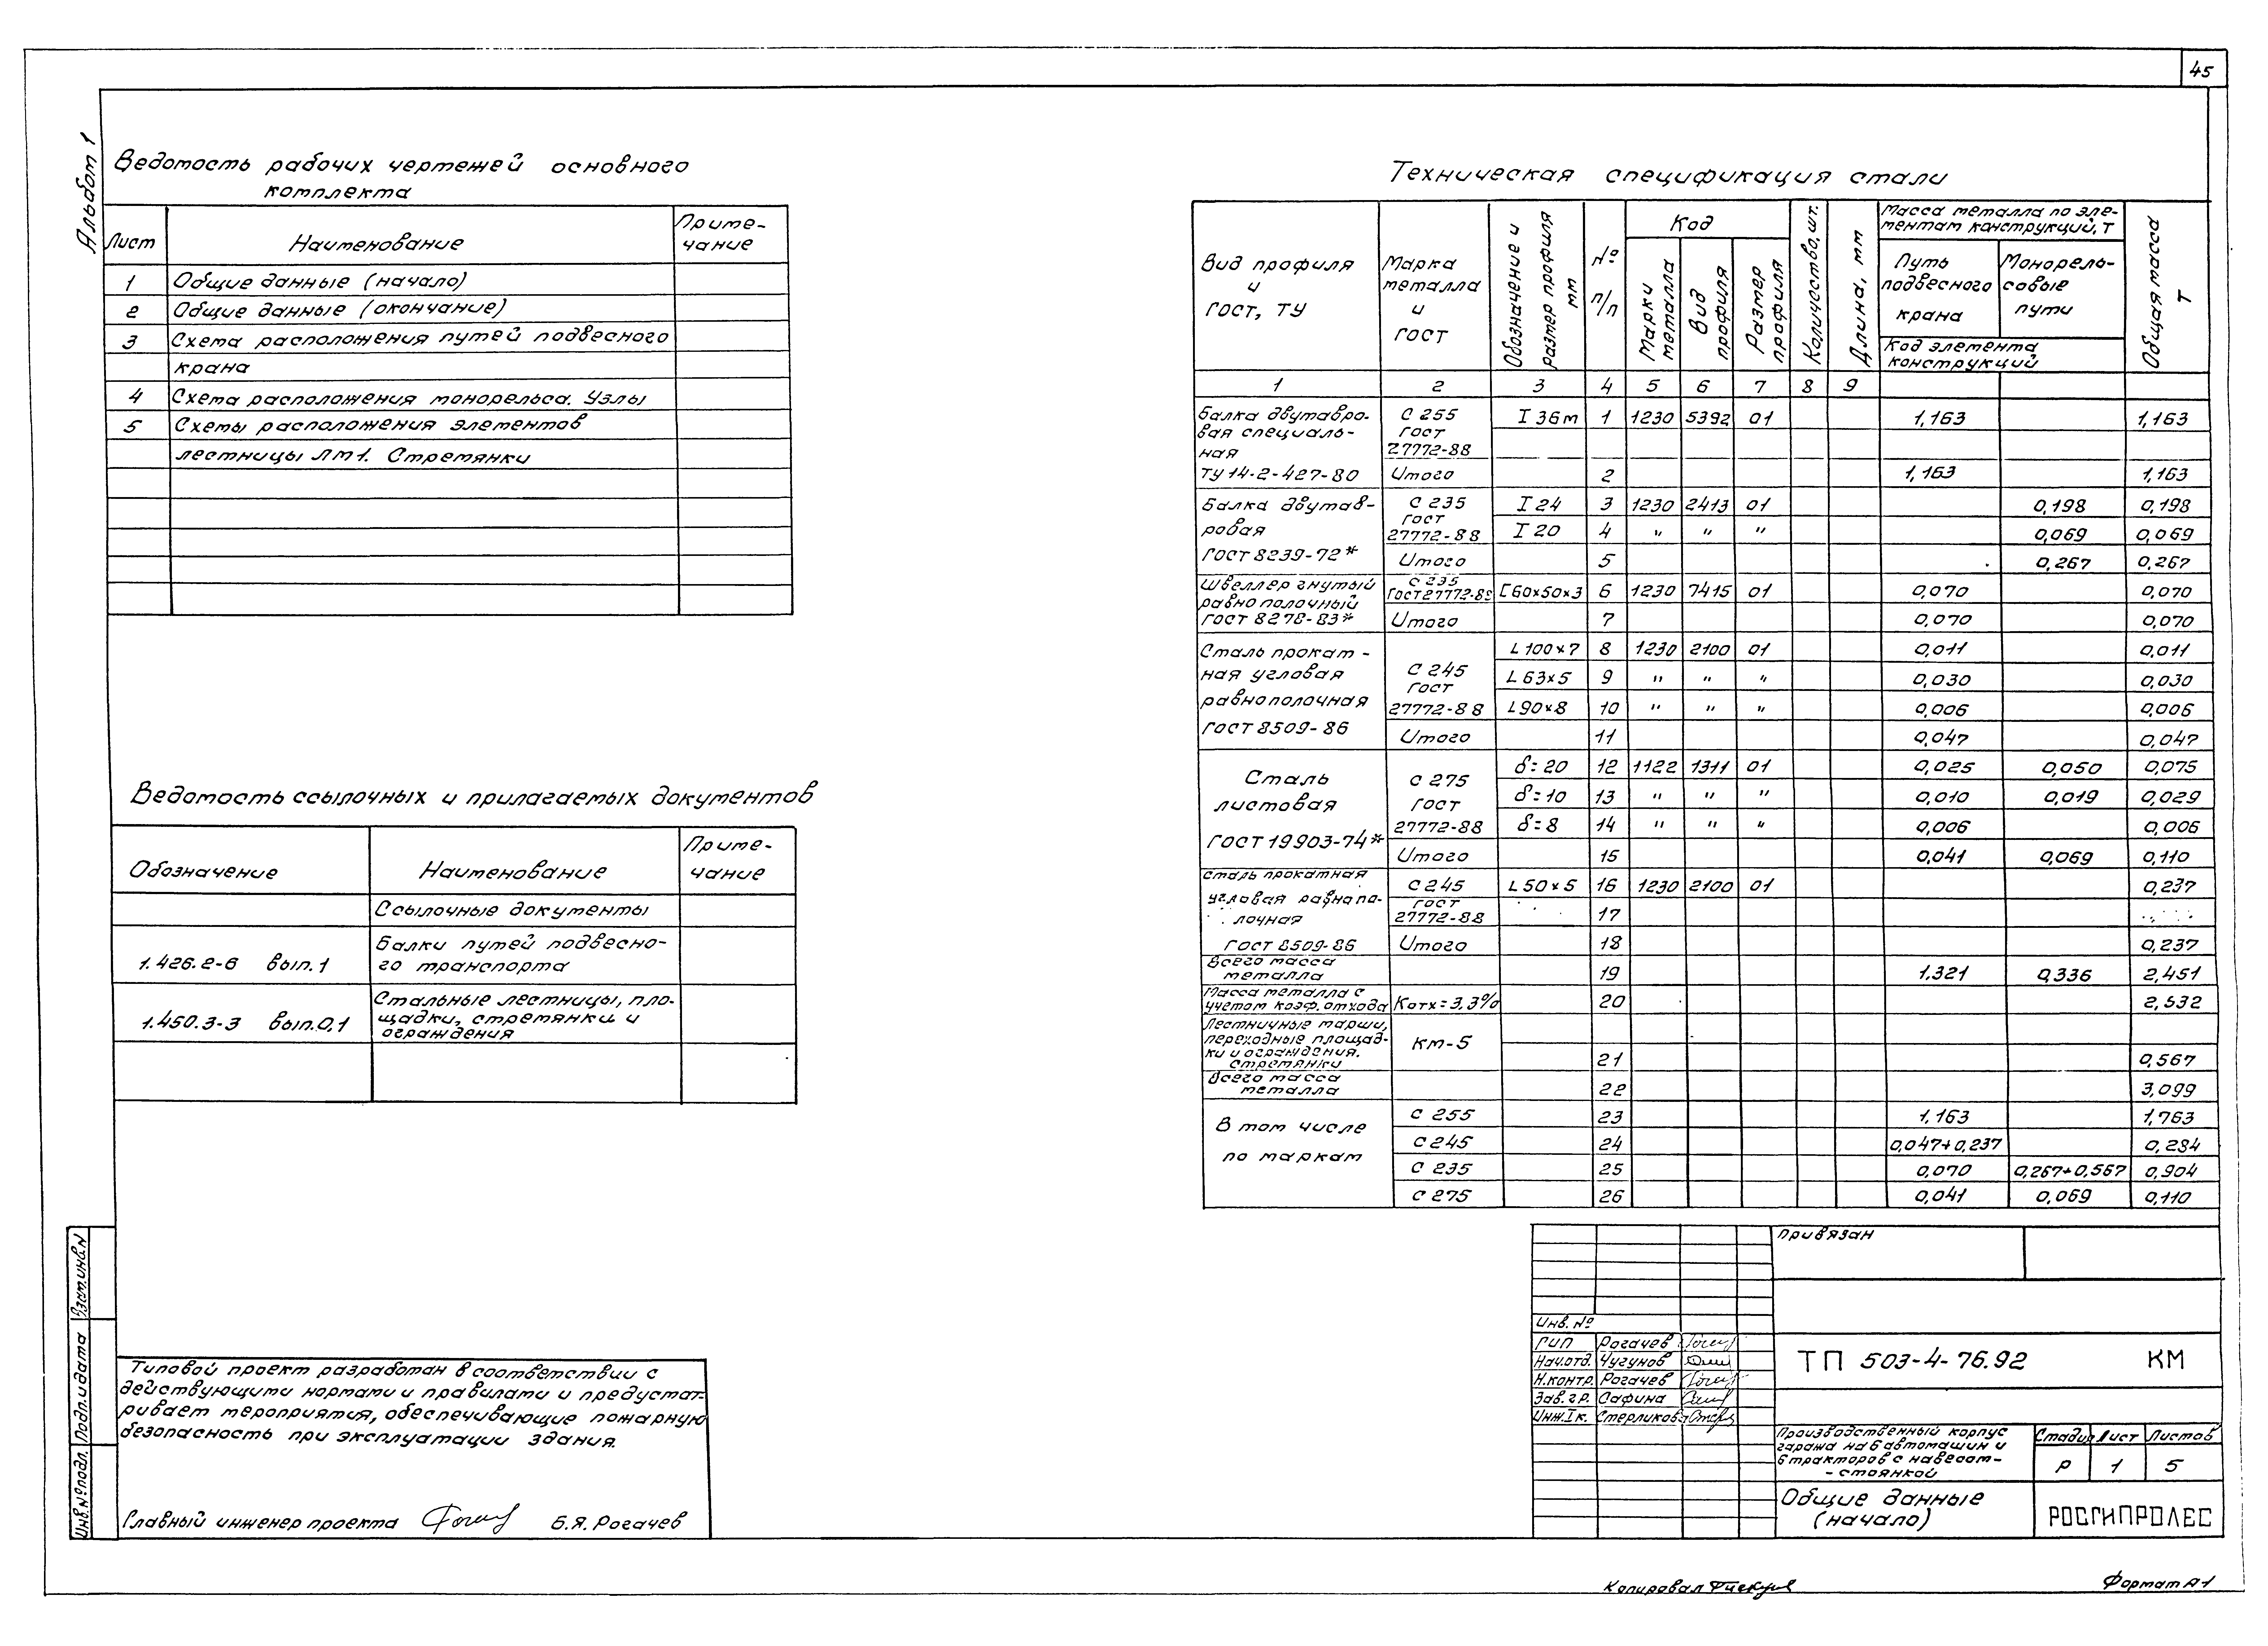 45
Альбом 1
Ведомость рабочих чертежей основного
комплекта
Лист Наименование Приме-
чание
1 Общие данные (начало)
2 Общие данные (окончание)
3 Схема расположения путей подвесного
крана
4 Схема расположения монорельса. Узлы
5 Схемы расположения элементов
лестницы ЛМ1. Стремянки
Ведомость ссылочных и прилагаемых документов
Обозначение Наименование Приме-
чание
Ссылочные документы
1.426.2-6 вып.1 Балки путей подвесно-
го транспорта
1.450.3-3 вып.0,1 Стальные лестницы, пло-
щадки, стремянки и
ограждения
Типовой проект разработан в соответствии с
действующими нормами и правилами и предусмат-
ривает мероприятия, обеспечивающие пожарную
безопасность при эксплуатации здания.
Главный инженер проекта Б.Я. Рогачев
Взам.инв.N
Подп. и дата
Инв.№подл.
Техническая спецификация стали
Вид профиля
и
ГОСТ, ТУ
Марка
металла
и
ГОСТ
Обозначение и
размер профиля
мм
№
п/п
Код
Марки
металла
Вид
профиля
Размер
профиля
Количество, шт.
Длина, мм
Масса металла по эле-
ментам конструкций, Т
Путь
подвесного
крана
Монорель-
совые
пути
Код элемента
конструкций
Общая масса
Т
1 2 3 4 5 6 7 8 9
Балка двутавро-
вая специаль-
ная
ТУ 14-2-427-80
С 255
ГОСТ
27772-88
I 36м 1 1230 5392 01 1,163 1,163
Итого 2 1,163 1,163
Балка двутав-
ровая
ГОСТ 8239-72*
С 235
ГОСТ
27772-88
I 24 3 1230 2413 01 0,198 0,198
I 20 4 " " " 0,069 0,069
Итого 5 0,267 0,267
Швеллер гнутый
равнополочный
ГОСТ 8278-83*
С 235
ГОСТ 27772-88
[60х50х3 6 1230 7415 01 0,070 0,070
Итого 7 0,070 0,070
Сталь прокат-
ная угловая
равнополочная
ГОСТ 8509-86
С 245
ГОСТ
27772-88
L 100х7 8 1230 2100 01 0,011 0,011
L 63х5 9 " " " 0,030 0,030
L 90х8 10 " " " 0,006 0,006
Итого 11 0,047 0,047
Сталь
листовая
ГОСТ 19903-74*
С 275
ГОСТ
27772-88
δ=20 12 1122 1311 01 0,025 0,050 0,075
δ=10 13 " " " 0,010 0,019 0,029
δ=8 14 " " " 0,006 0,006
Итого 15 0,041 0,069 0,110
Сталь прокатная
угловая равнопо-
лочная
ГОСТ 8509-86
С 245
ГОСТ
27772-88
L 50х5 16 1230 2100 01 0,237
17
Итого 18 0,237
Всего масса
металла 19 1.321 0,336 2,451
Масса металла с
учетом коэф. отхода Котх=3.3% 20 2,532
Лестничные марши,
переходные площад-
ки и ограждения.
Стремянки
КМ-5 21 0,567
Всего масса
металла 22 3,099
В том числе
по маркам
С 255 23 1,163 1,763
С 245 24 0,047+0,237 0,284
С 235 25 0,070 0,267+0,567 0,904
С 275 26 0,041 0,069 0,110
Привязан
Инв. №
ГИП Рогачев
Нач.отд. Чугунов
Н.контр. Рогачев
Зав.гр. Сафина
Инж.Iк. Стерликова
ТП 503-4-76.92 КМ
Производственный корпус
гаража на 6 автомашин и
6 тракторов с навесом-
-стоянкой
Стадия Лист Листов
Р 1 5
Общие данные
(начало)
РОСГИПРОЛЕС
Копировал
Формат А1